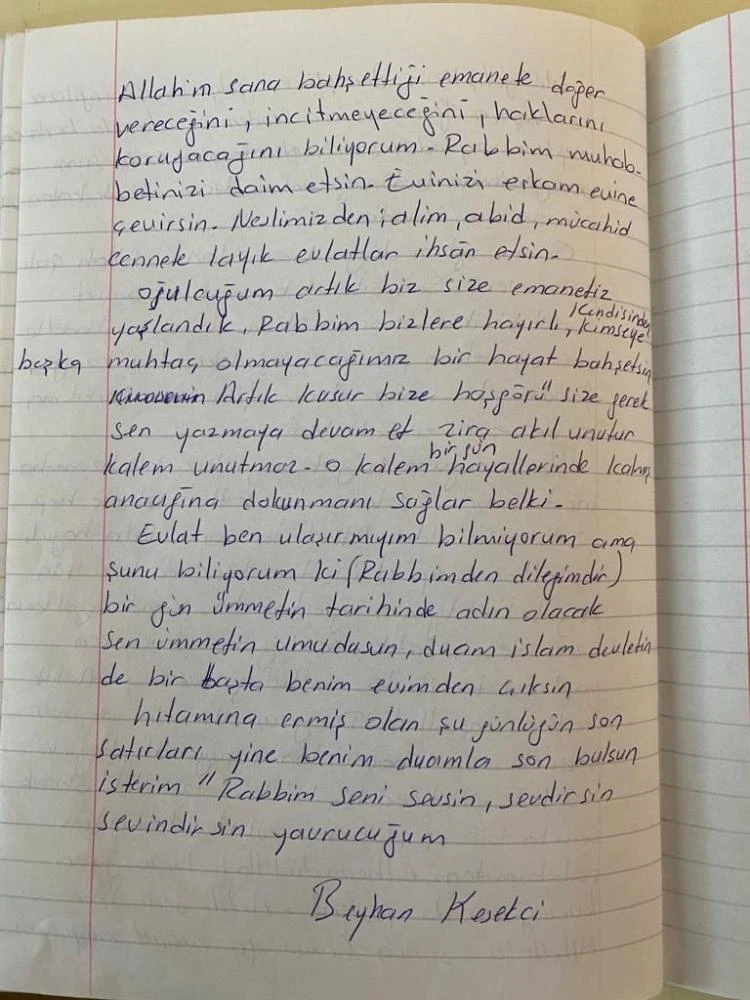 Allah'ım sana bahşettiği emanete değer
vereceğini, incitmeyeceğini, haklarını
koruyacağını biliyorum. Rabbim muhab-
betinizi daim etsin. Evinizi erkam evine
çevirsin. Neslimizden; alim, abid, mücahid
cennete layık evlatlar ihsân etsin.
oğulcuğum artık biz size emanetiz
yaşlandık, Rabbim bizlere hayırlı, kendisinden
başka kimseye
muhtaç olmayacağımız bir hayat bahşetsin
Artık kusur bize hoşgörü" size gerek
sen yazmaya devam et zira akıl unutur
kalem unutmaz. o kalem bir gün hayallerinde kalmış
anacığına dokunmanı sağlar belki.
Evlat ben ulaşırmıyım bilmiyorum ama
şunu biliyorum ki (Rabbimden dileğimdir)
bir gün ümmetin tarihinde adın olacak
sen ümmetin umudusun, duam islam devletin
de bir başta benim evimden çıksın
hıtamına ermiş olan şu günlüğün son
satırları yine benim duamla son bulsun
isterim "Rabbim seni sevsin, sevdirsin
sevindirsin yavrucuğum
Beyhan Kesekci